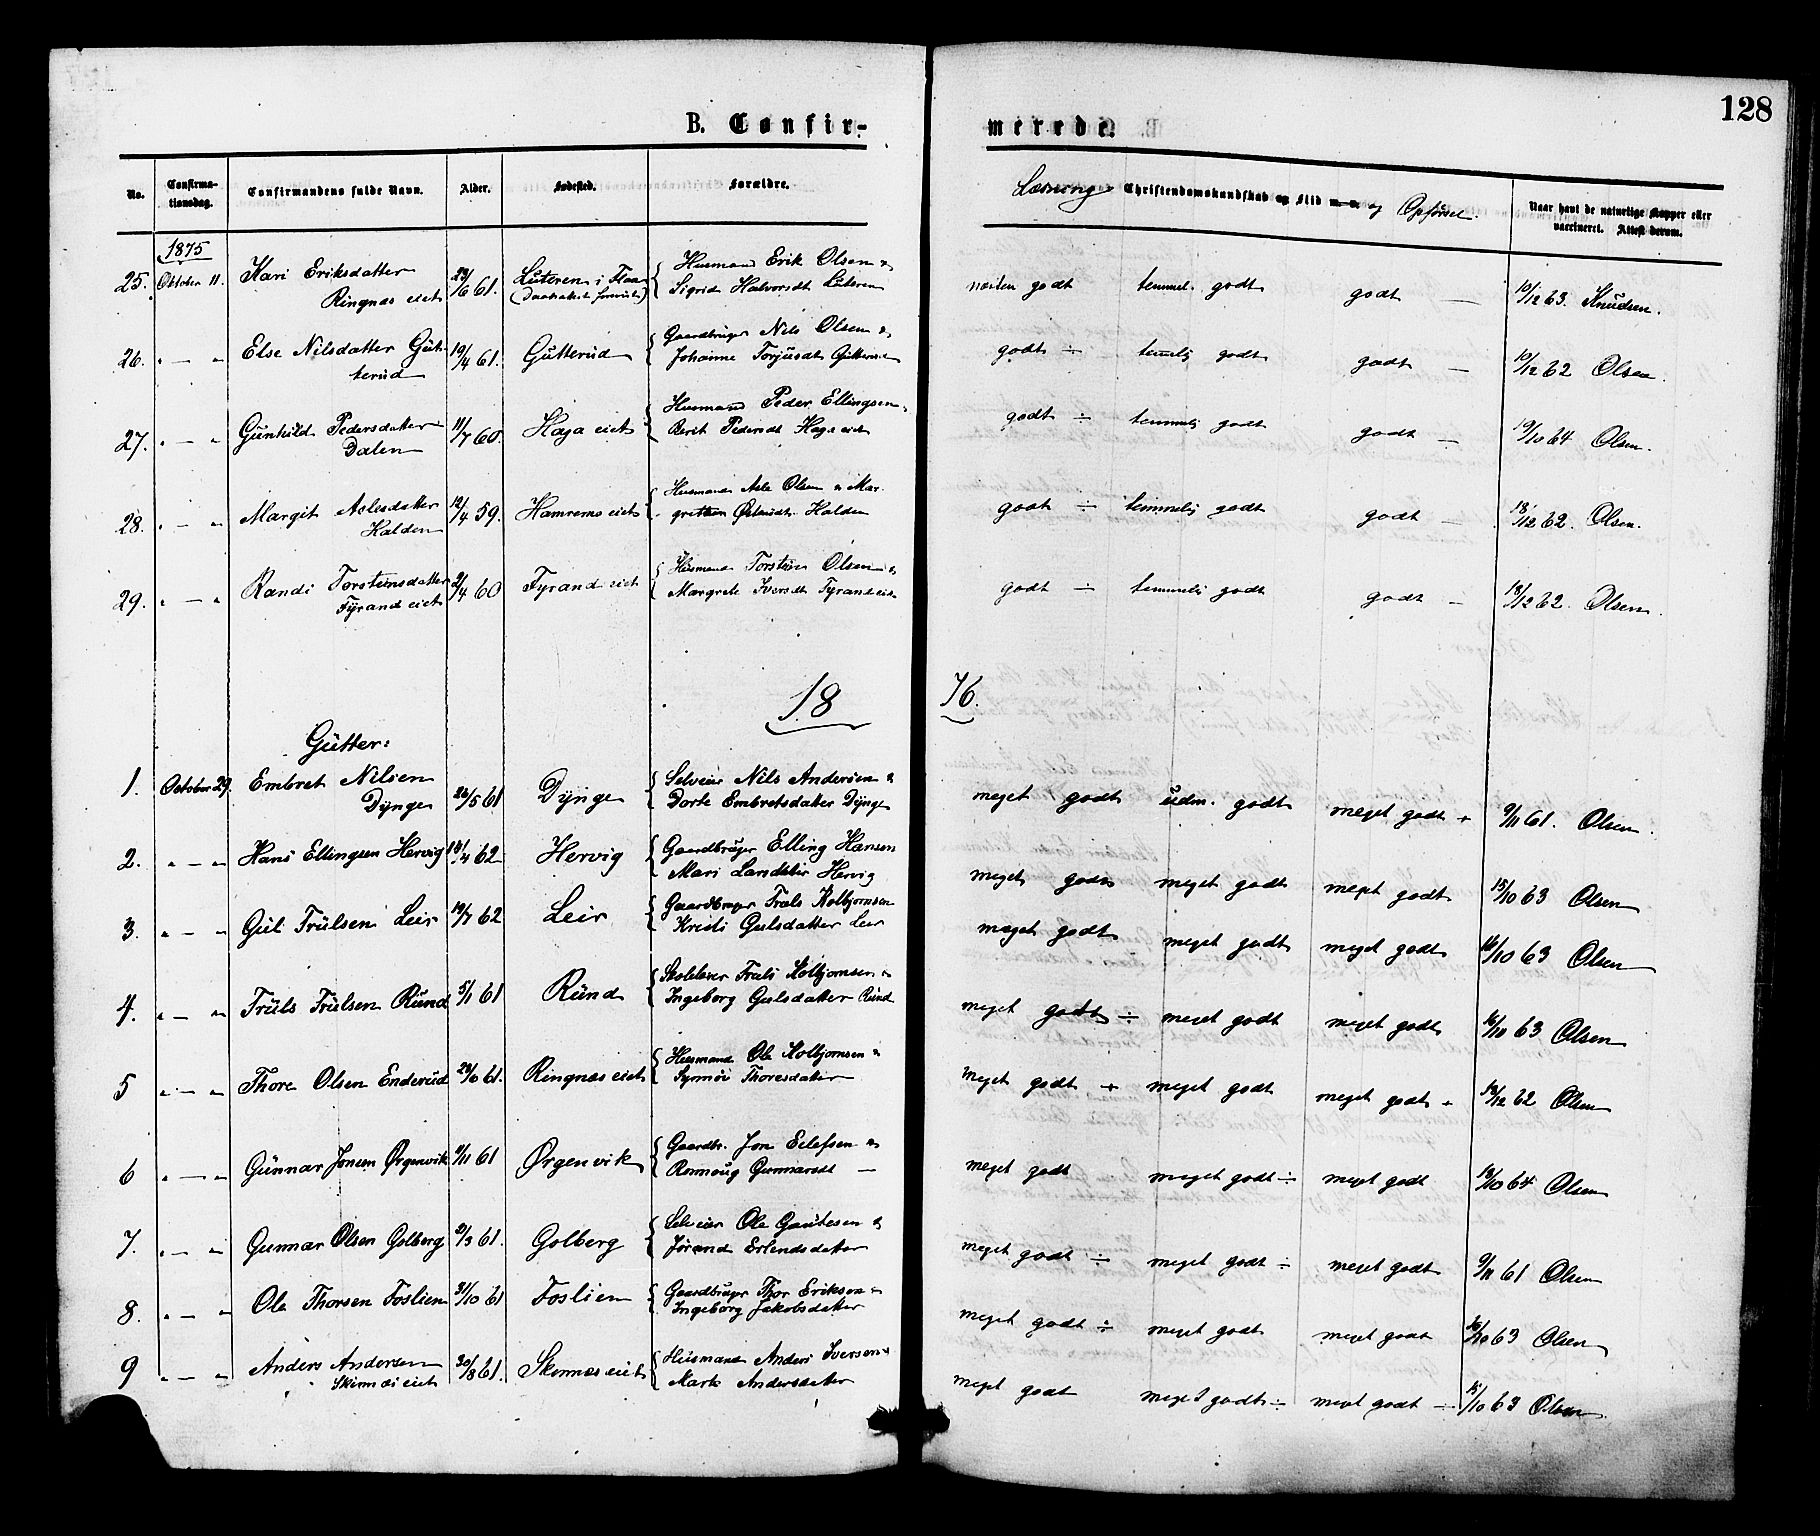 128
B. Confir-
merede.
No.
Confirma-
tionsdag.
Confirmandens fulde Navn.
Alder.
Fødested.
Forældre.
Læsning Christendomskundskab og Flid m. v. og Opførsel.
Naar havt de naturlige Kopper eller
vaccineret. Attest derom.
1875
25. Oktober 11. Kari Eriksdatter 61. i Flaa { Husmand Erik Olsen &
Ringnæs eiet Sigrid Halvorsdt Luteren
næsten godt temmel. godt godt — 10/12 63. Knudsen.
26. " — " Else Nilsdatter Gut- 19/4 61. Gutterud { Gaardbruger Nils Olsen &
terud Johanne Torjusdt Gutterud
godt ÷ temmelig godt godt — 10/12 62 Olsen.
27. " — " Gunhild Pedersdatter 11/7 60. Haga eiet { Husmand Peder Ellingsen
Dalen Berit Pedersdt Haga eiet
godt ÷ temmelig godt godt — 19/10 64 Olsen.
28. " — " Margit Aslesdatter 12/4 59. Hamrems eiet { Husmand Asle Olsen & Mar-
Halden Halden
godt ÷ temmelig godt godt — 18/12 62. Olsen.
29. " — " Randi Torstensdatter 2/4 60 Fyrand eiet { Husmand Torsten Olsen &
Fyrand eiet Margrete Iversdt Fyrand eiet
godt — temmelig godt godt — 18/12 62. Olsen.
18 76.
Gutter:
1. October 29. Embret Nilsen 26/5 61 Dynge { Selveier Nils Andersen &
Dynge Dorte Embretsdatter Dynge
meget godt udm. godt meget godt + 9/11 61. Olsen.
2. " — " Hans Ellingsen Hervig 62 Hervig { Gaardbruger Elling Hansen
Mari Hervig
meget godt meget godt meget godt 15/10 63 Olsen
3. " — " Gul Trulsen Leir 19/7 62 Leir { Gaardbruger Truls Kolbjørnsen
Kristi Gulsdatter Leir
meget godt meget godt meget godt 16/10 63 Olsen
4. " — " Truls Trulsen Rund 5/1 61 Rund { Truls Kolbjørnsen &
Ingeborg Gulsdatter Rund
meget godt ÷ meget godt meget godt 16/10 63 Olsen
5 " — " Thore Olsen Enderud 61. Ringnæs eiet { Husmand Ole Kolbjørnsen &
Synnøi Thoresdatter
meget godt + meget godt meget godt + 18/12 62 Olsen
6 " — " Gunnar Jonsen Ørgenvik 11/11 61 Ørgenvik { Gaardbr. Jon Eilefsen &
Gunnarsdt —
meget godt meget godt ÷ meget godt 19/10 64 Olsen
7. " — " Gunnar Olsen Golberg 2/3 61. Golberg { Selveier Ole Gautesen &
Jørand Erlendsdatter
meget godt ÷ meget godt ÷ meget godt 9/11 61 Olsen
8. " — " Ole Thorsen Foslien 31/10 61 Foslien { Gaardbruger Thor Eriksen &
Ingeborg Jakobsdatter
meget godt ÷ meget godt meget godt 16/10 63 Olsen
9 " — " Anders Andersen 30/8 61. Skinnæs eiet { Husmand Anders Iversen &
Skinnæs eiet Andersdatter
meget godt meget godt ÷ meget godt — 15/10 63 Olsen